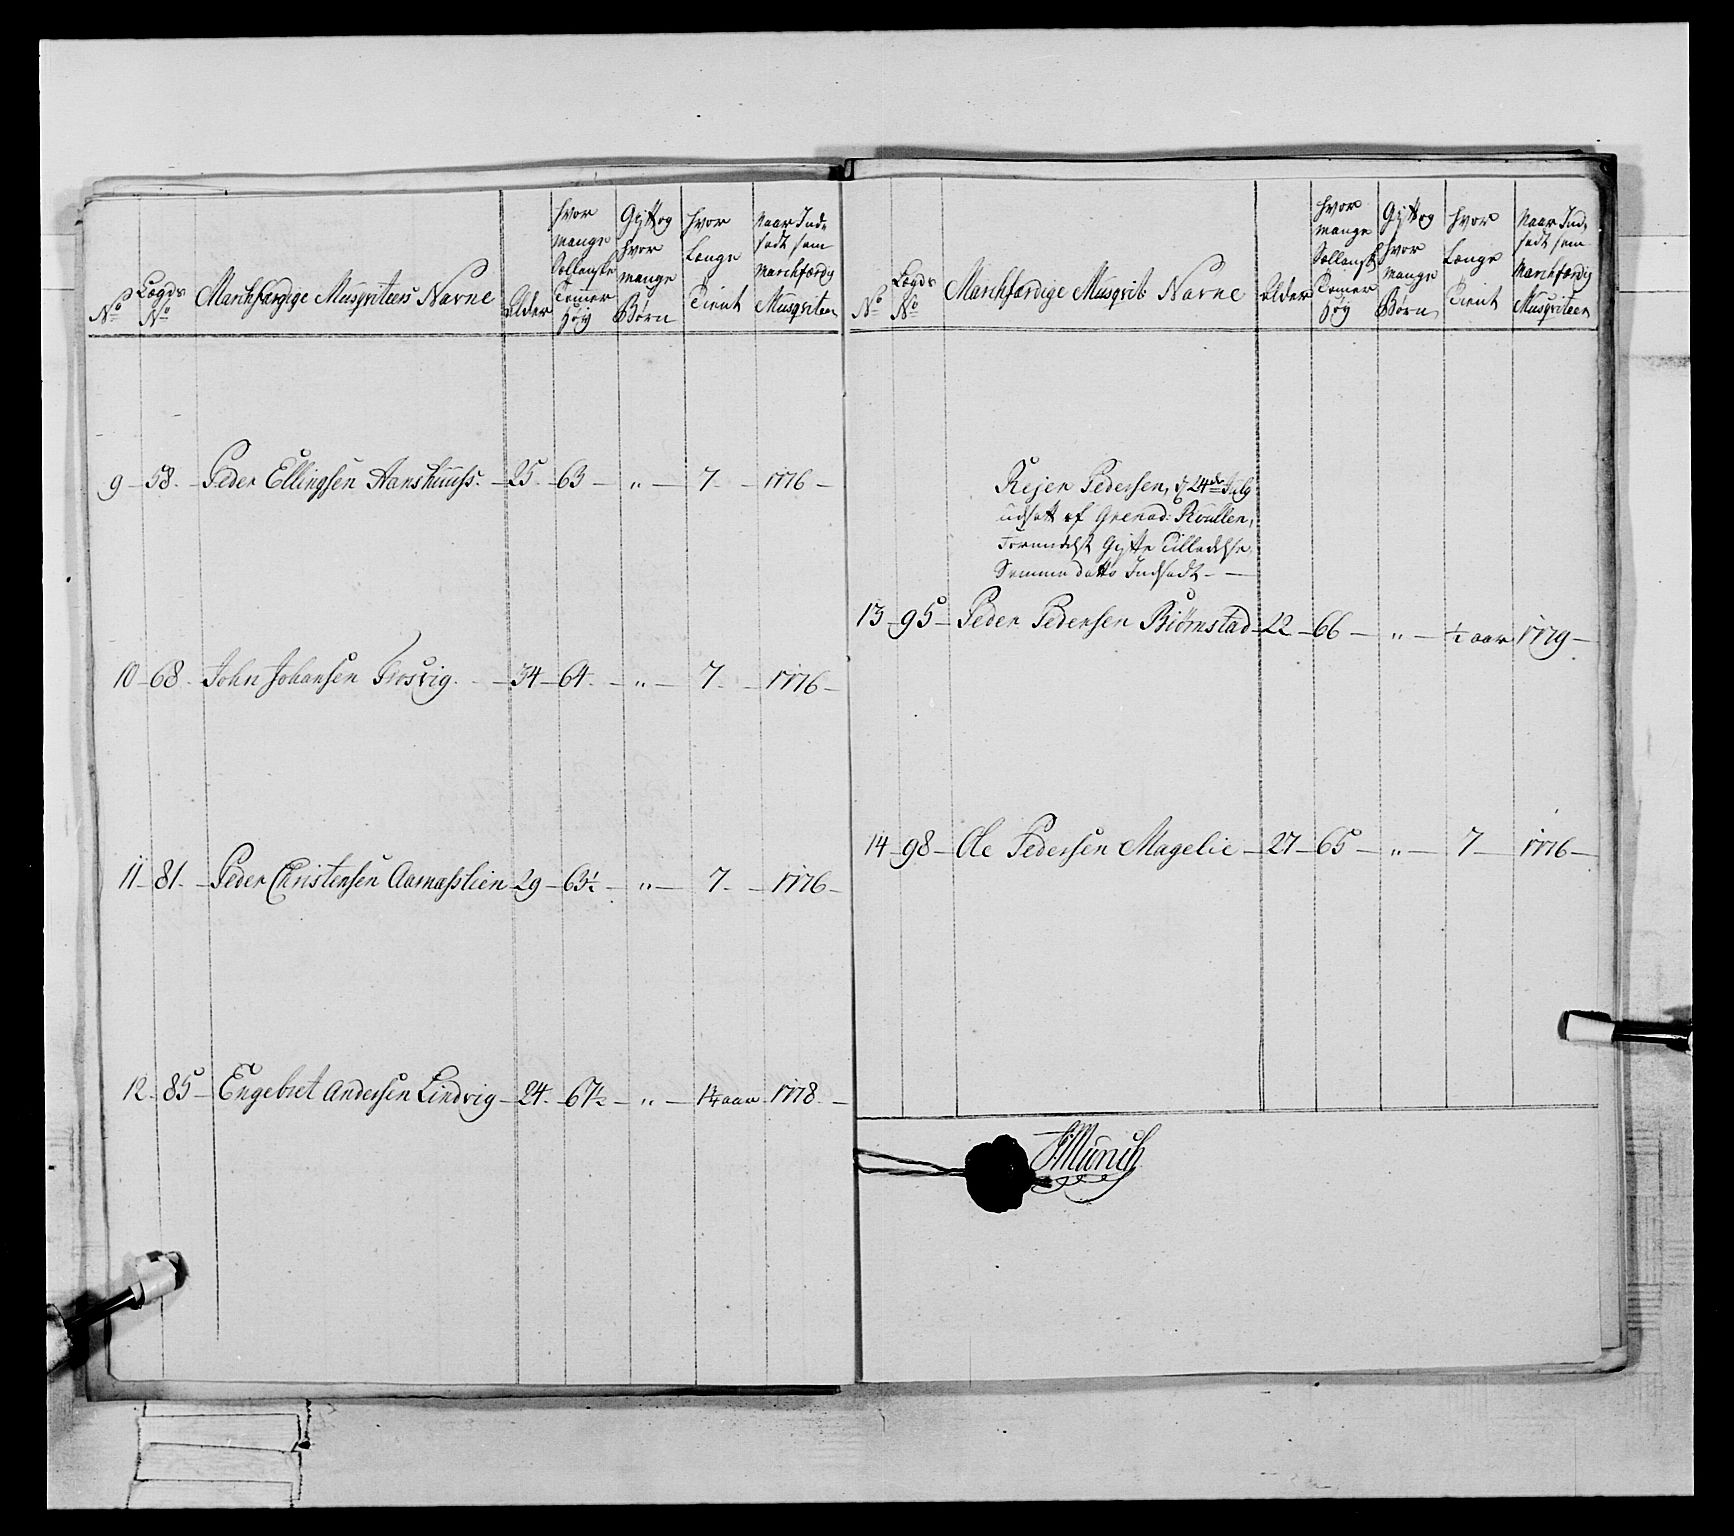 No
Lægds No
Marchfærdige Musqviteers Navne
Alder
hvor mange Sællanske Tomer høÿ
Gift og hvor mange Børn
hvor Længe Tient
Naar Indsadt som Marchfærdig Musqviteer
9 - 58. Peder Ellingsen Aanshuuss. - 25. - 63 - " - 7. - 1776 -
10 - 68. John Johansen Frosvig. - 34 - 64. - " - 7. - 1776 -
11 - 81. - Peder Christensen Aarnæsslien - 29 - 63½ - " - 7. - 1776 -
12. - 85 - Engebret Andersen Lindvig - 24. - 67½ - " - 1¼ aar - 1778. -
No
Lægds No
Marchfærdige Musqvit: Navne
Alder
hvor mange Sællansk Tomer høÿ
Gift og hvor mange Børn
hvor Længe Tient
Naar Indsadt som Marchfærdig Musqviteer
Rejer Pedersen, d 24de July
udsatt af Grenad: Rullen,
Formedelst Gifte Tilladelse,
Samme dato Indsadt - -
13 - 95 - Peder Pedersen Biørnstad - 22 - 66 - " - ½ aar 1779 -
14 - 98 - Ole Pedersen Magelie - 27 - 65 - " - 7 - 1776 -
Munch